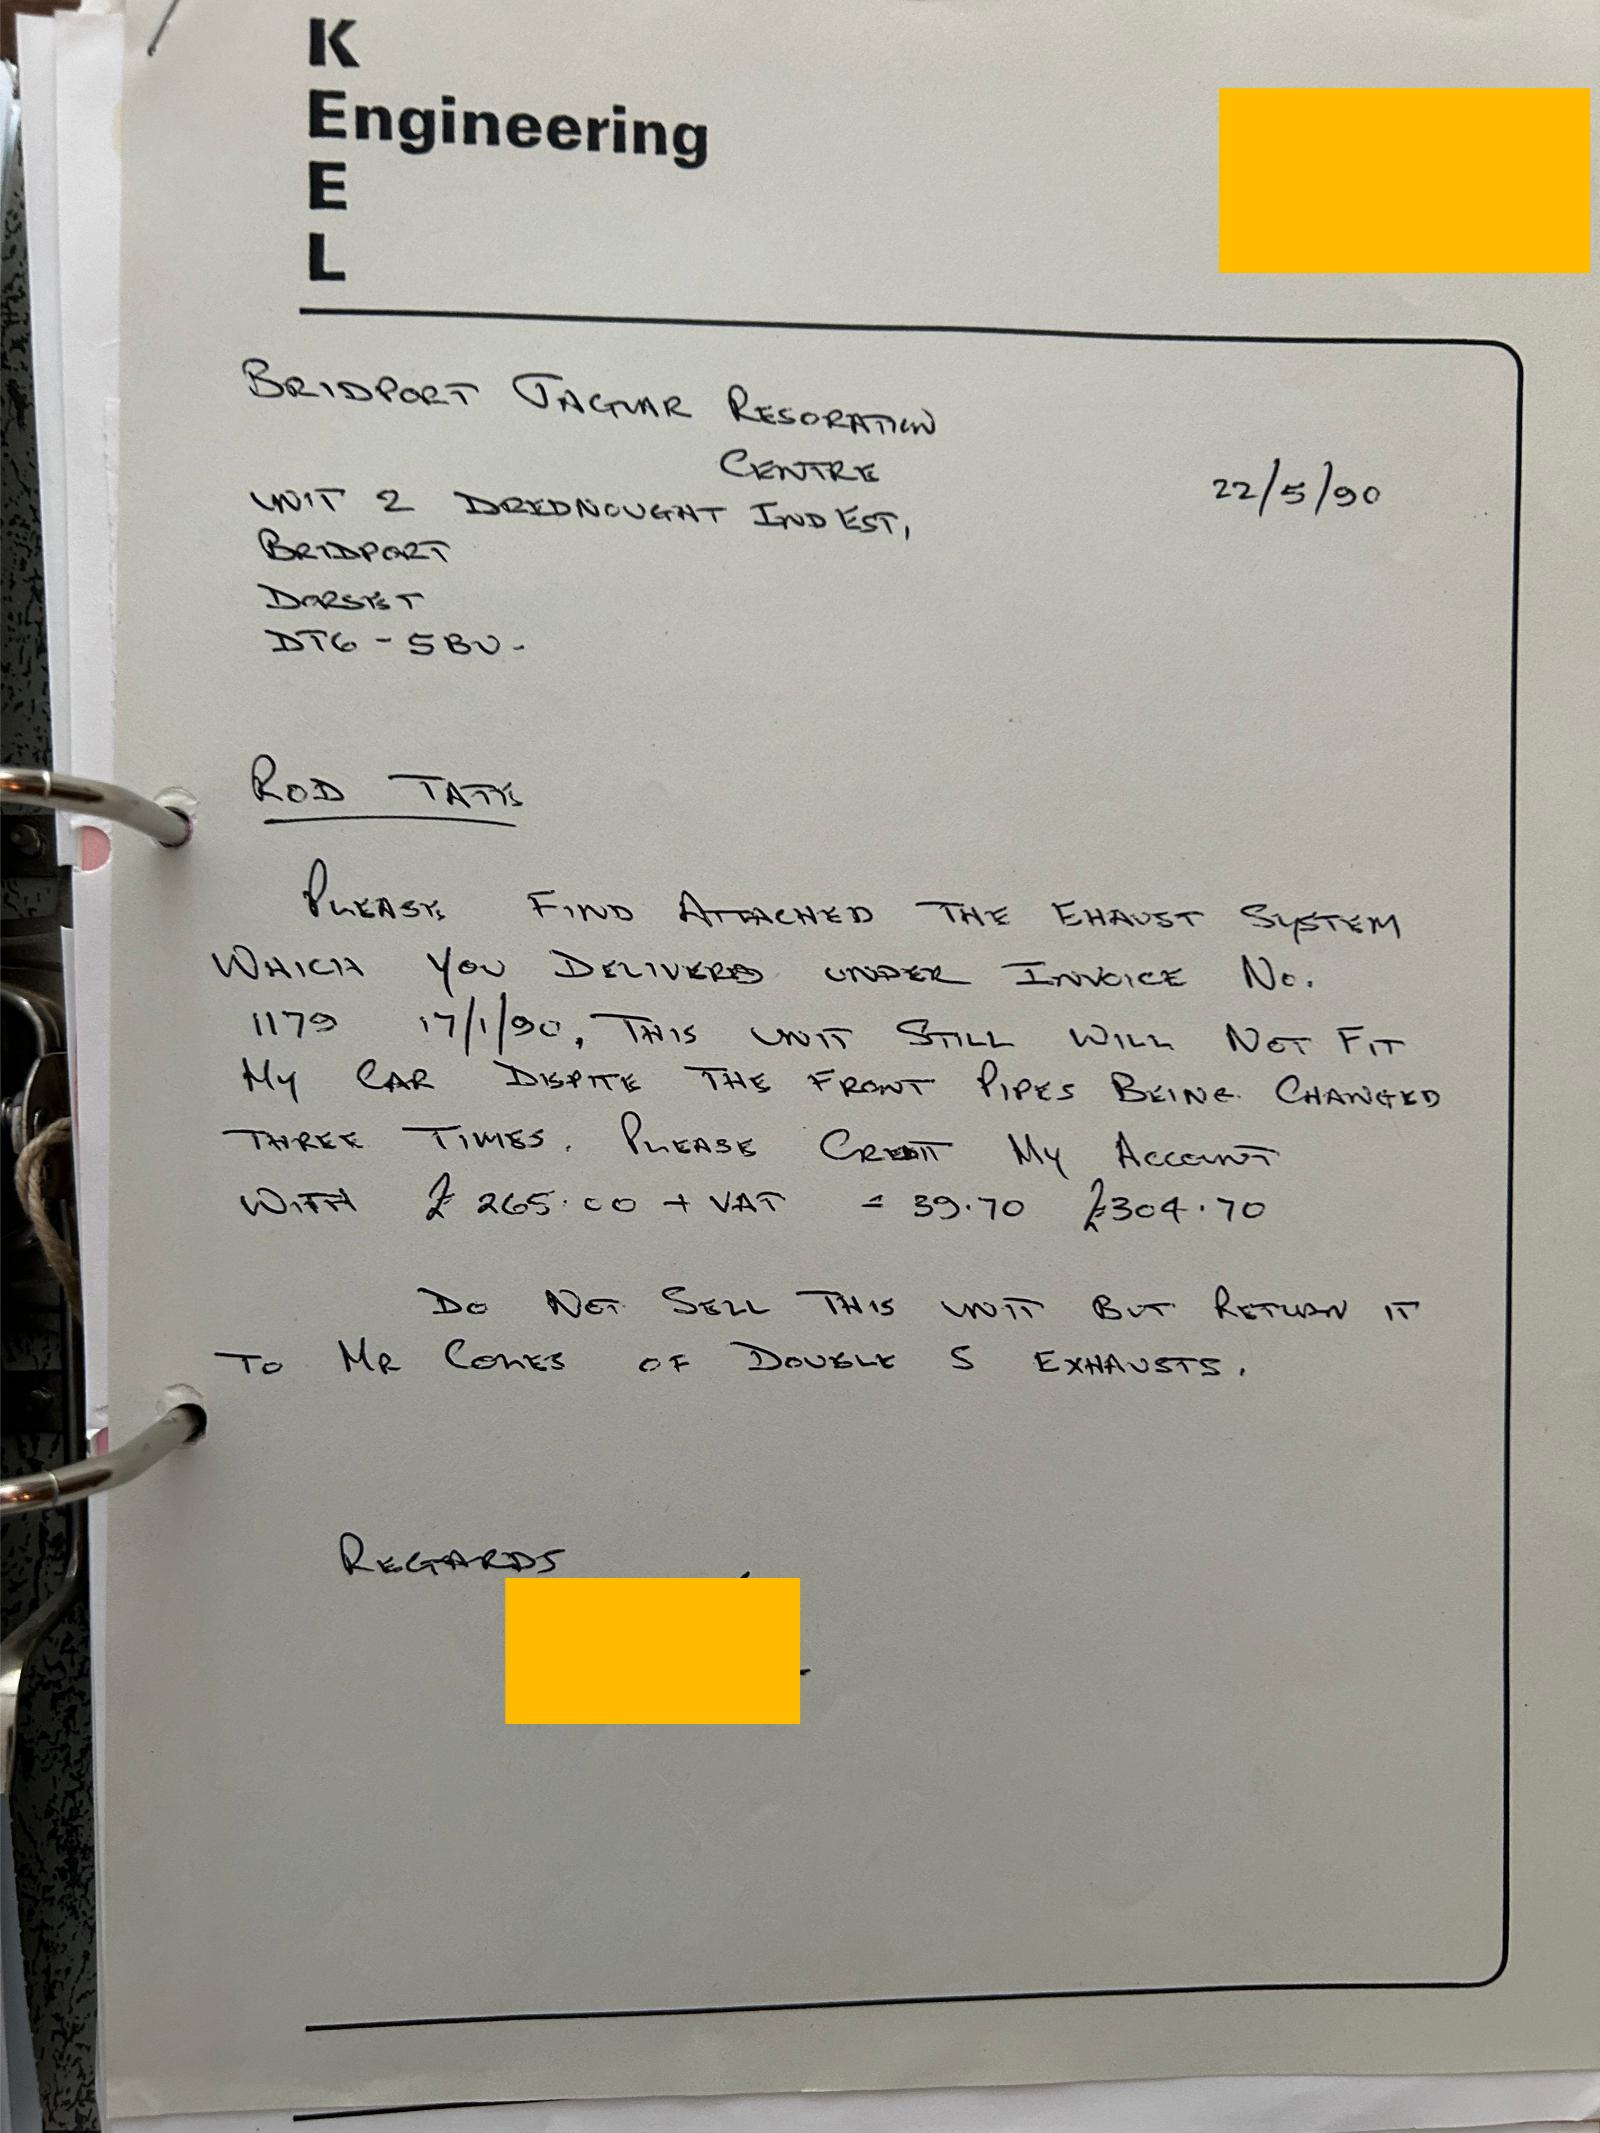 K
Engineering
E
L
BRIDPORT JAGUAR RESORATION
CENTRE
22/5/90
UNIT 2 DREDNOUGHT IND EST,
BRIDPORT
DORSET
DT6 - 5BU -
ROD TATE
PLEASE FIND ATTACHED THE EHAUST SYSTEM
WHICH YOU DELIVERED UNDER INVOICE NO.
1179 17/1/90, THIS UNIT STILL WILL NOT FIT
MY CAR DISPITE THE FRONT PIPES BEING CHANGED
THREE TIMES. PLEASE CREDIT MY ACCOUNT
WITH £265.00 + VAT = 39.70 £304.70
DO NOT SELL THIS UNIT BUT RETURN IT
TO MR COLES OF DOUBLE S EXHAUSTS.
REGARDS